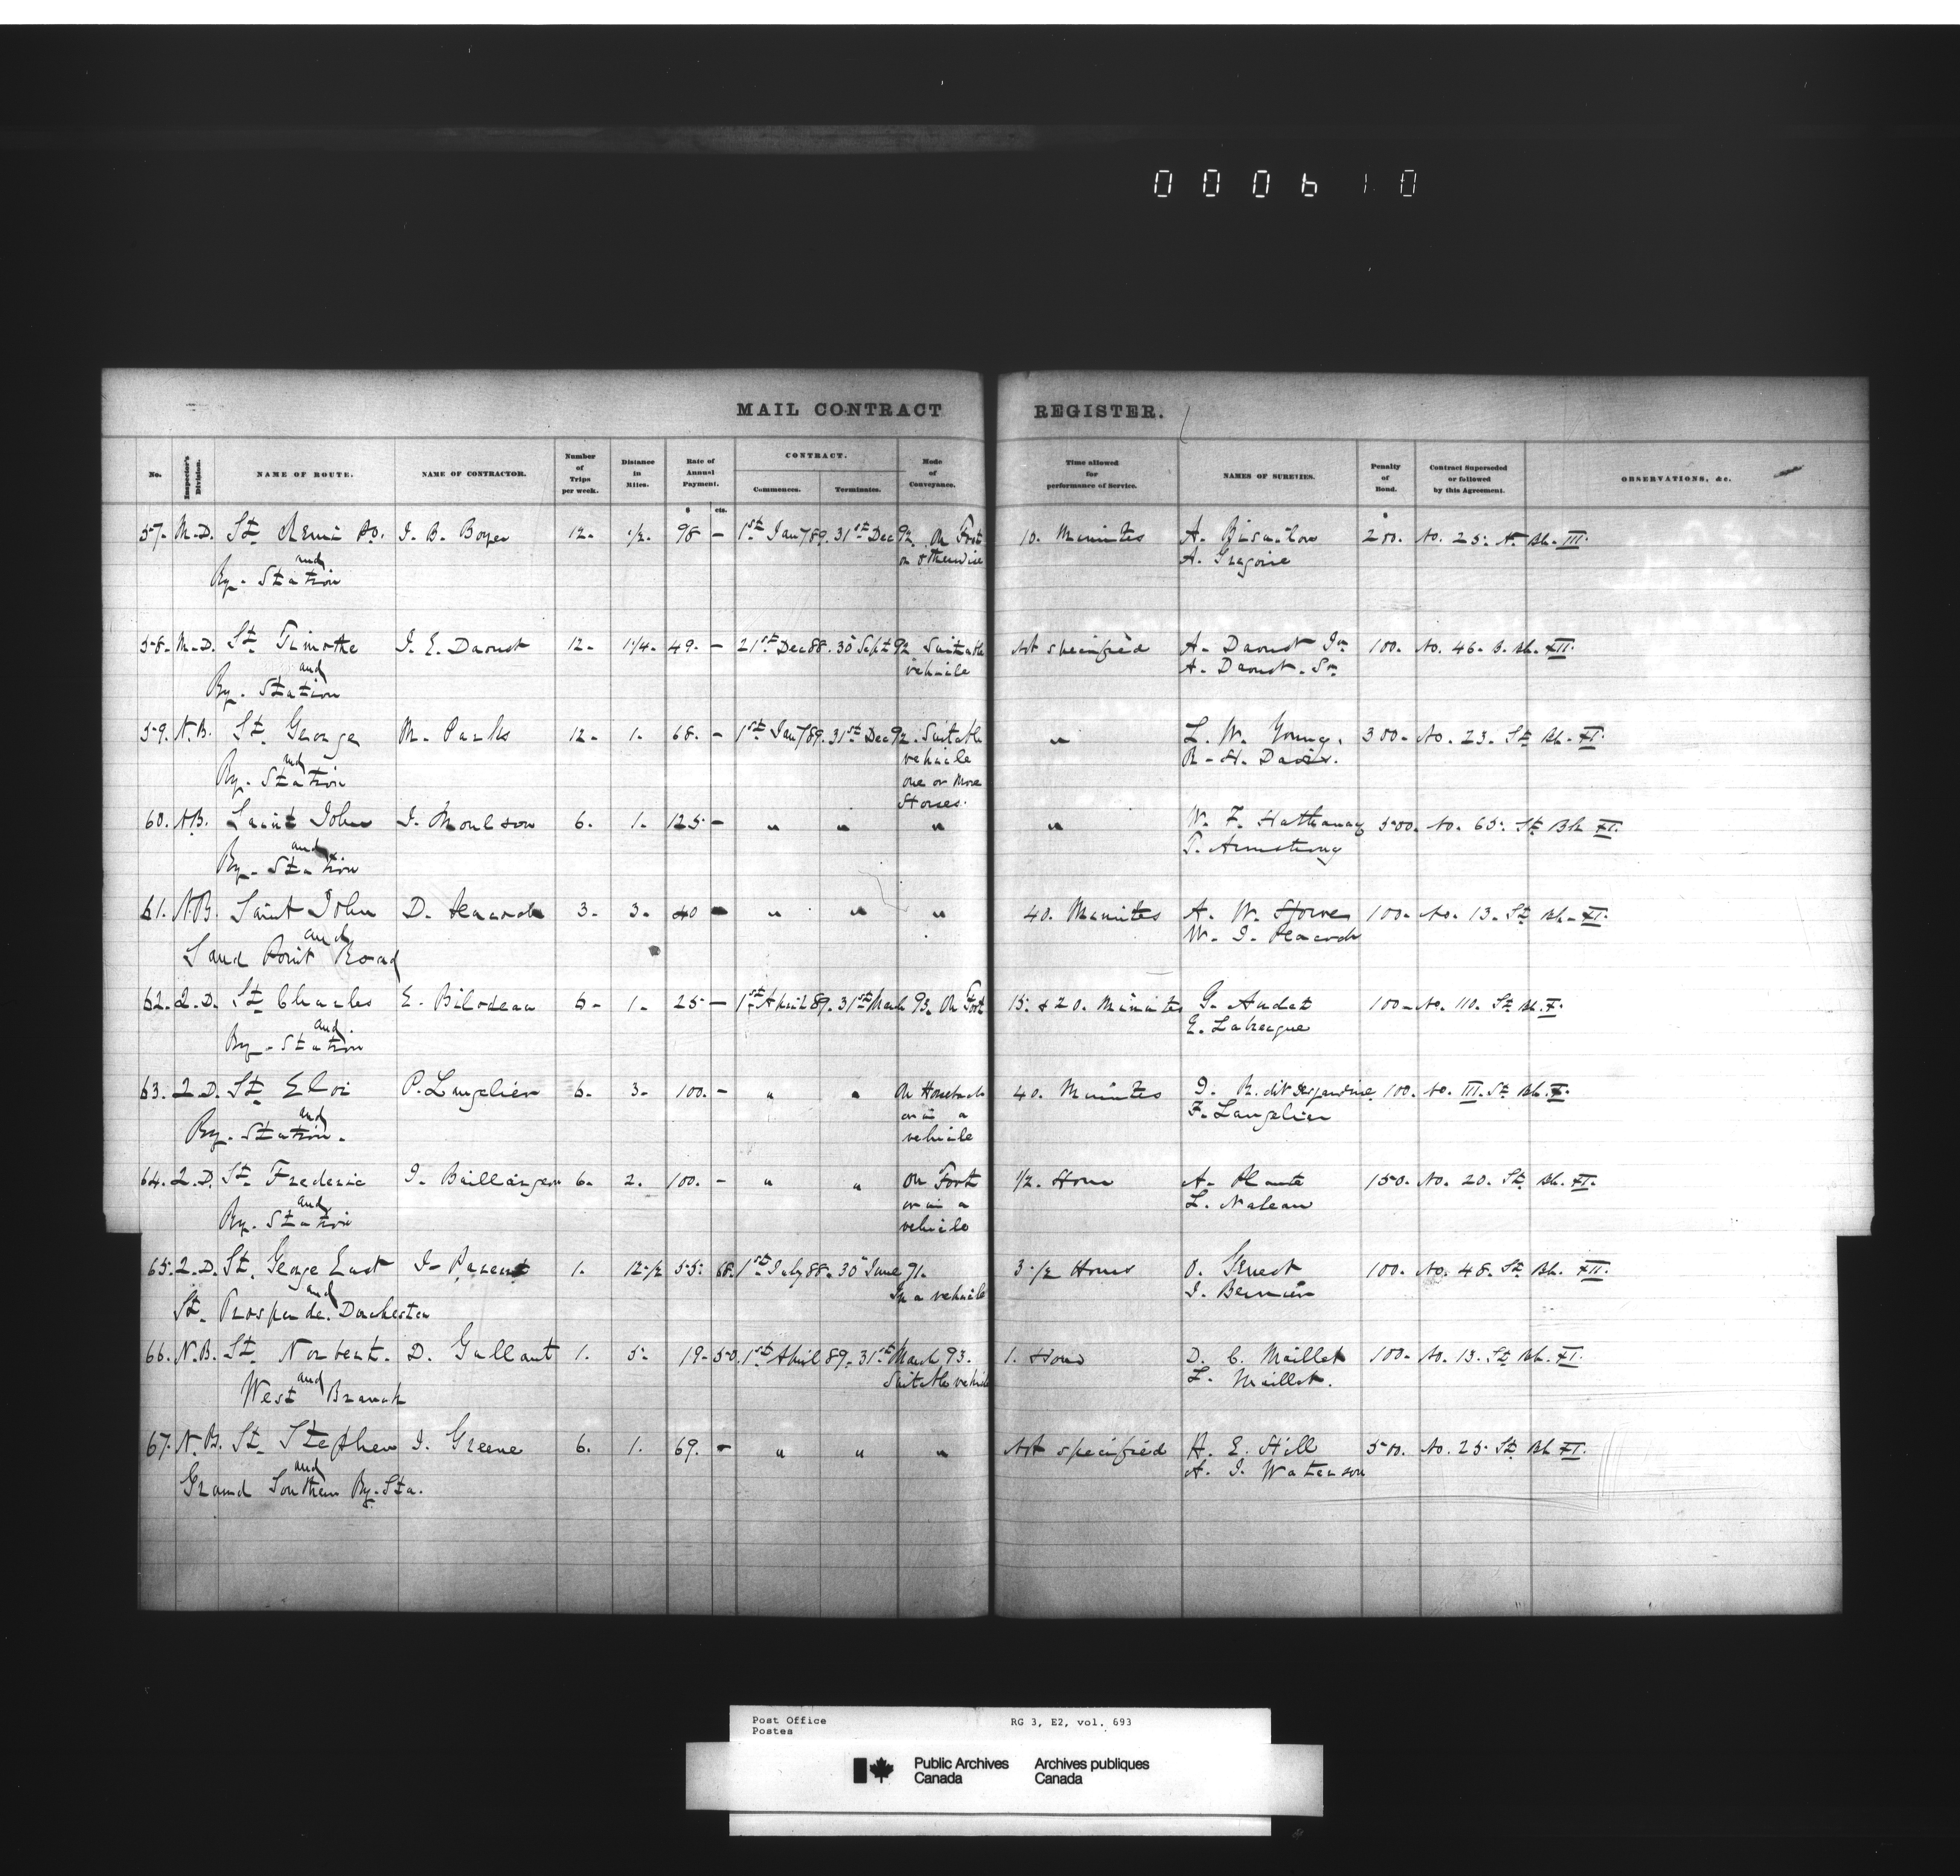 000610
MAIL CONTRACT REGISTER.
No. Inspector's Division. NAME OF ROUTE. NAME OF CONTRACTOR. Number of Trips per week. Distance in Miles. Rate of Annual Payment. CONTRACT. Commences. Terminates. Mode of Conveyance. Time allowed for performance of Service. NAMES OF SURETIES. Penalty of Bond. Contract Superseded or followed by this Agreement. OBSERVATIONS, &c.
$ cts.
57. M.D. St. Remi P.O. J. B. Boyer 12. 1/2. 98 - 1st Jany 89. 31st Dec 92. On Foot 10. Minutes A. 200. No. 25.
and or otherwise A. Gregoire
Ry. Station
58. M.D. St. Timothe J. E. Daoust 12. 1 1/4. 49. - 21st Dec 88. 30 Sept 92 Suitable Not specified A. Daoust Jr. 100. No. 46. B. Bk. XII.
and vehicle A. Daoust. Sr.
Ry. Station
59. N.B. St. George M. Parks 12. 1. 68. - 1st Jany 89. 31st Dec 92. Suitable " L. W. Young. 300. No. 23. St. Bk. XI.
and vehicle R. H. Davis.
Ry. Station one or more
Horses.
60. N.B. Saint John J. Moulson 6. 1. 125 - " " " " W. F. Hathaway 500. No. 65. St. Bk XI.
and T. Armstrong
Ry. Station
61. N.B. Saint John D. 3. 3. 40 - " " " 40. Minutes A. W. Howe 100. No. 13. St. Bk. XI.
and W. J. Peacock
Sand Point Road
62. Q.D. St. Charles E. Bilodeau 6. 1. 25 - 1st April 89. 31st March 93. On Foot 15. & 20. Minutes G. Audet 100. No. 110. St. Bk. X.
and E. Labrecque
Ry. Station
63. Q.D. St. Eloi P. Langelier 6. 3. 100. - " " On Horseback 40. Minutes 100. No. III. St. Bk. X.
and or in a F. Langelier
Ry. Station. vehicle
64. Q.D. St. Frederic J. Baillargeon 6. 2. 100. - " " On Foot 1/2. Hour A. Plante 150. No. 20. St. Bk. XI.
and or in a L. Nadeau
Ry. Station vehicle
65. Q.D. St. George East J. Parent 1. 12 1/2 55. 68. 1st July 88. 30 June 91. 3 1/2 Hours O. 100. No. 48. St. Bk. XII.
and In a vehicle J. Bernier
St. Prosper de Dorchester
66. N.B. St. Norbert. D. Gallant 1. 5. 19. 50. 1st April 89. 31st March 93. 1. Hour D. C. Maillet 100. No. 13. St. Bk. XI.
and Suitable vehicle L. Maillet.
West Branch
67. N.B. St. Stephen J. Greene 6. 1. 69. - " " " Not specified H. E. Hill 500. No. 25. St. Bk. XI.
and A. J. Waterson
Grand Southern Ry. Sta.
Post Office RG 3, E2, vol. 693
Postes
Public Archives Archives publiques
Canada Canada